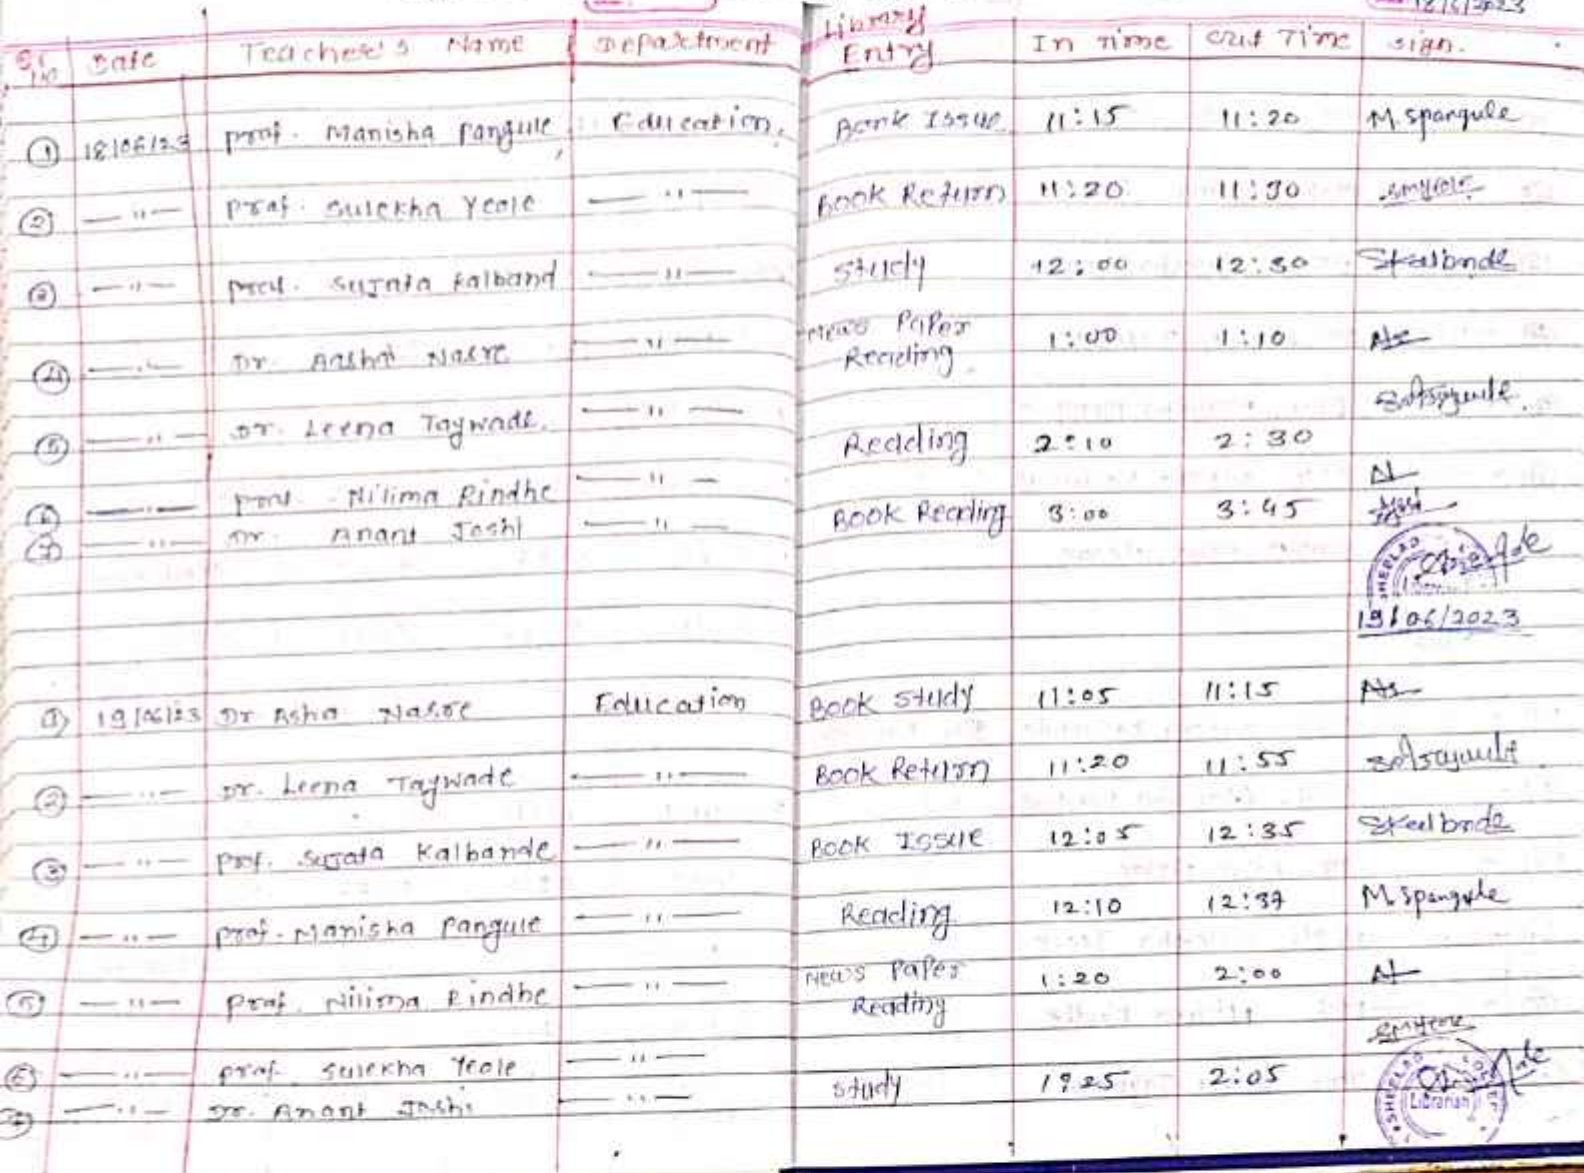 18/6/2023
Sr. No Date Teacher's Name Department Library Entry In Time Out Time Sign.
① 18/06/23 prof. Manisha Pangule Education. Book Issue 11:15 11:20 M. Spangule
② —"— prof. Sulekha Yeole —"— Book Return 11:20 11:30
③ —"— prof. Sujata Kalband —"— Study 12:00 12:30 Skalbande
④ —"— Dr. Aasha Nasre —"— News Paper Reading 1:00 1:10
⑤ —"— Dr. Leena Taywade. —"— Reading 2:10 2:30
⑥ —"— prof. Nilima Rindhe —"— Book Reading 3:00 3:45
⑦ —"— Dr. Anant Joshi —"—
19/06/2023
① 19/06/23 Dr Asha Nasre Education Book Study 11:05 11:15
② —"— Dr. Leena Taywade —"— Book Return 11:20 11:55
③ —"— prof. Sujata Kalbande —"— Book Issue 12:05 12:35 Skalbande
④ —"— prof. Manisha Pangule —"— Reading 12:10 12:37 M. Spangule
⑤ —"— prof. Nilima Rindhe —"— News Paper Reading 1:20 2:00
⑥ —"— prof. Sulekha Yeole —"— Study 1:25 2:05
⑦ —"— Dr. Anant Joshi —"—
Librarian